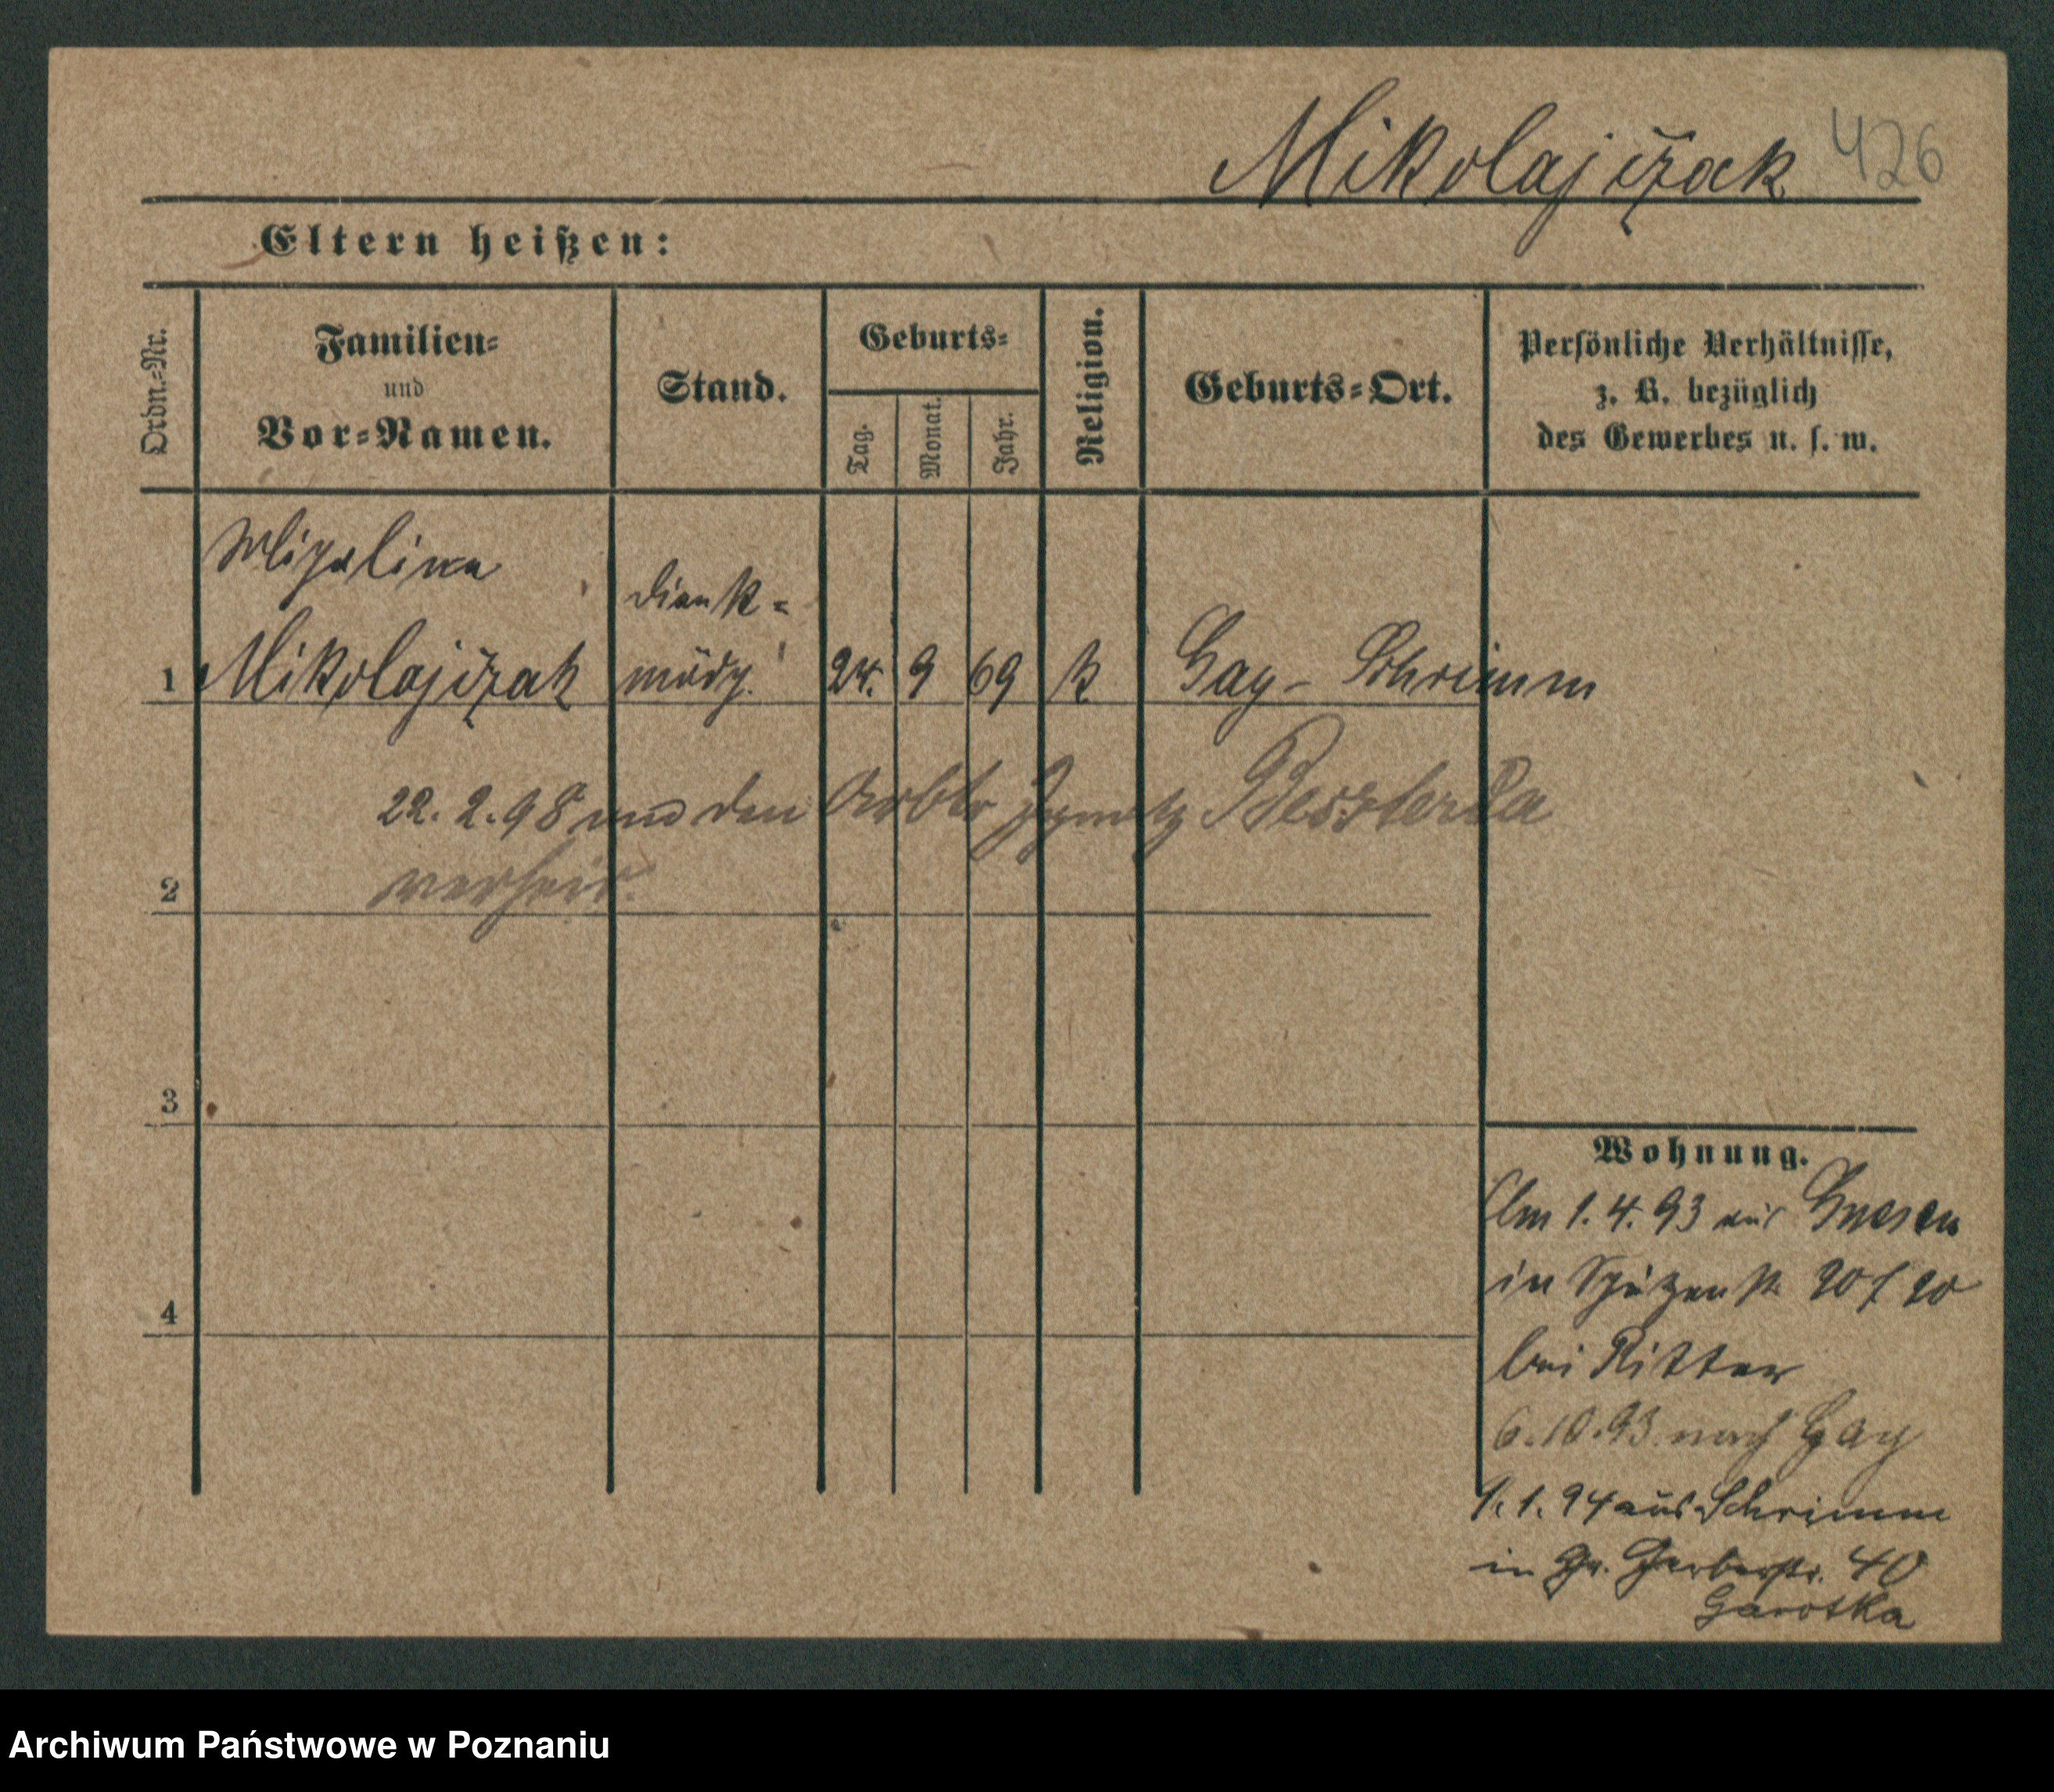 Mikolajczak 426
Eltern heißen:
Ordn.-Nr.
Familien-
und
Vor-Namen.
Stand.
Geburts-
Tag.
Monat.
Jahr.
Religion.
Geburts-Ort.
Persönliche Verhältnisse,
z. B. bezüglich
des Gewerbes u. s. w.
Michalina
dienst-
1 Mikolajczak mädch. 24. 9 69 K Gay - Schrimm
22. 2. 98 den Arbtr Ignatz Beszterda
2 verheir.
3
4
Wohnung.
Am 1. 4. 93 aus Gnesen
in Schützenstr 20
bei Ritter
6. 10. 93. nach Gay
1. 1. 94 aus Schrimm
in Gr. Gerberstr. 40
Garotka
Archiwum Państwowe w Poznaniu